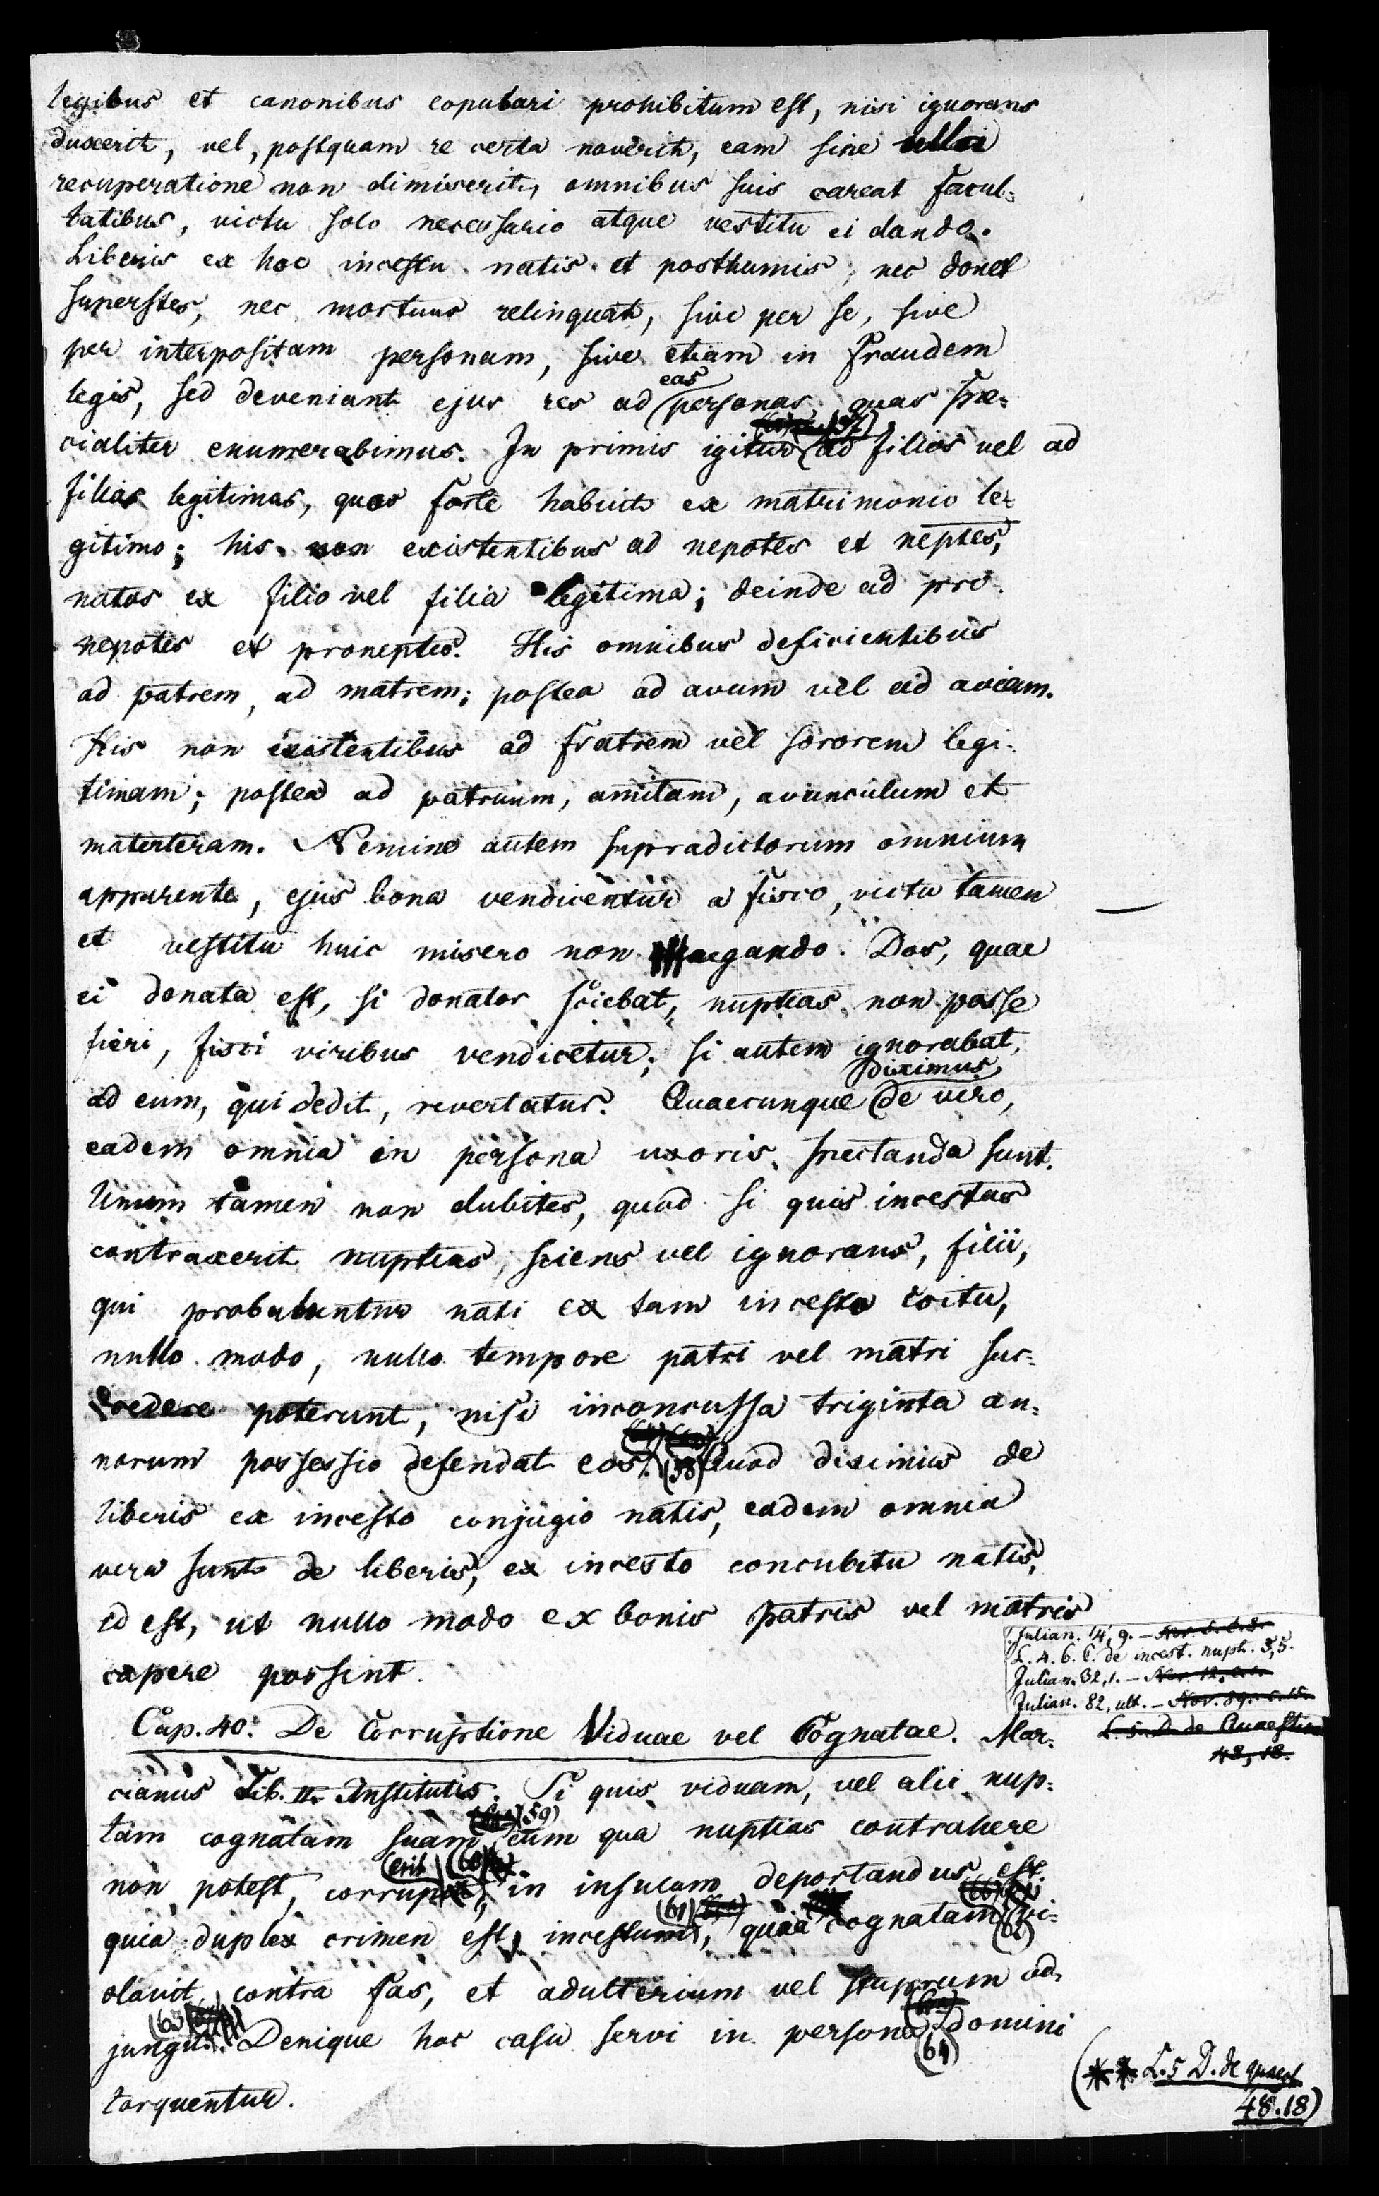 legibus et canonibus copulari prohibitum est, nisi ignorans
duxerit, vel, postquam re certa noverit, eam sine ulla
recuperatione non dimiserit, omnibus suis careat facul-
tatibus, victu solo necessario atque vestitu ei dando.
Liberis ex hoc incestu natis et posthumis, nec donet
superstes, nec mortuus relinquat, sive per se, sive
per interpositam personam, sive etiam in fraudem
legis, sed deveniant ejus res ad eas personas quas spe-
cialiter enumerabimus. In primis igitur (57) ad filios vel ad
filias legitimas, quos forte habuit ex matrimonio le-
gitimo; his non existentibus ad nepotes et neptes,
natos ex filio vel filia legitima; deinde ad pro-
nepotes et proneptes. His omnibus deficientibus
ad patrem, ad matrem; postea ad avum vel ad aviam.
His non existentibus ad fratrem vel sororem legi-
timam; postea ad patruum, amitam, avunculum et
materteram. Nemine autem supradictorum omnium
apparente, ejus bona vendicentur a fisco, victu tamen
et vestitu huic misero non negando. Dos, quae
ei donata est, si donator sciebat, nuptias non posse
fieri, fisci viribus vendicetur; si autem ignorabat,
ad eum, qui dedit, revertatur. Quaecunque diximus de viro,
eadem omnia in persona uxoris spectanda sunt.
Unum tamen non dubites, quod si quis incestas
contraxerit nuptias, sciens vel ignorans, filii,
qui probabuntur nati ex tam incesto coitu,
nullo modo, nullo tempore patri vel matri suc-
cedere poterunt, nisi inconcussa triginta an-
norum possessio defendat eos. (58) Quod diximus de
liberis ex incesto conjugio natis, eadem omnia
vera sunt de liberis, ex incesto concubitu natis,
id est, ut nullo modo ex bonis patris vel matris
capere possint.
Julian. 14, 9. — Nov. 5. c. 8.
L. 4. 6. C. de incest. nupt. 5, 5.
Julian. 32, 1. — Nov. 12. c. 1.
Julian. 82, ult. — Nov. 89. c. 15.
L. 5. D. de Quaestion
48, 18.
Cap. 40. De Corruptione Viduae vel Cognatae. Mar-
cianus Lib. II. Institutis. Si quis viduam, vel alii nup-
tam cognatam suam (59) cum qua nuptias contrahere
non potest, corruperit (60), in insulam deportandus est
quia duplex crimen est, incestum (61), quia cognatam (62) vi-
olavit contra fas, et adulterium vel stuprum ad-
jungit. (63) Denique hoc casu servi in persona (64) domini
torquentur.
(** L. 5 D. de quaest
48.18)